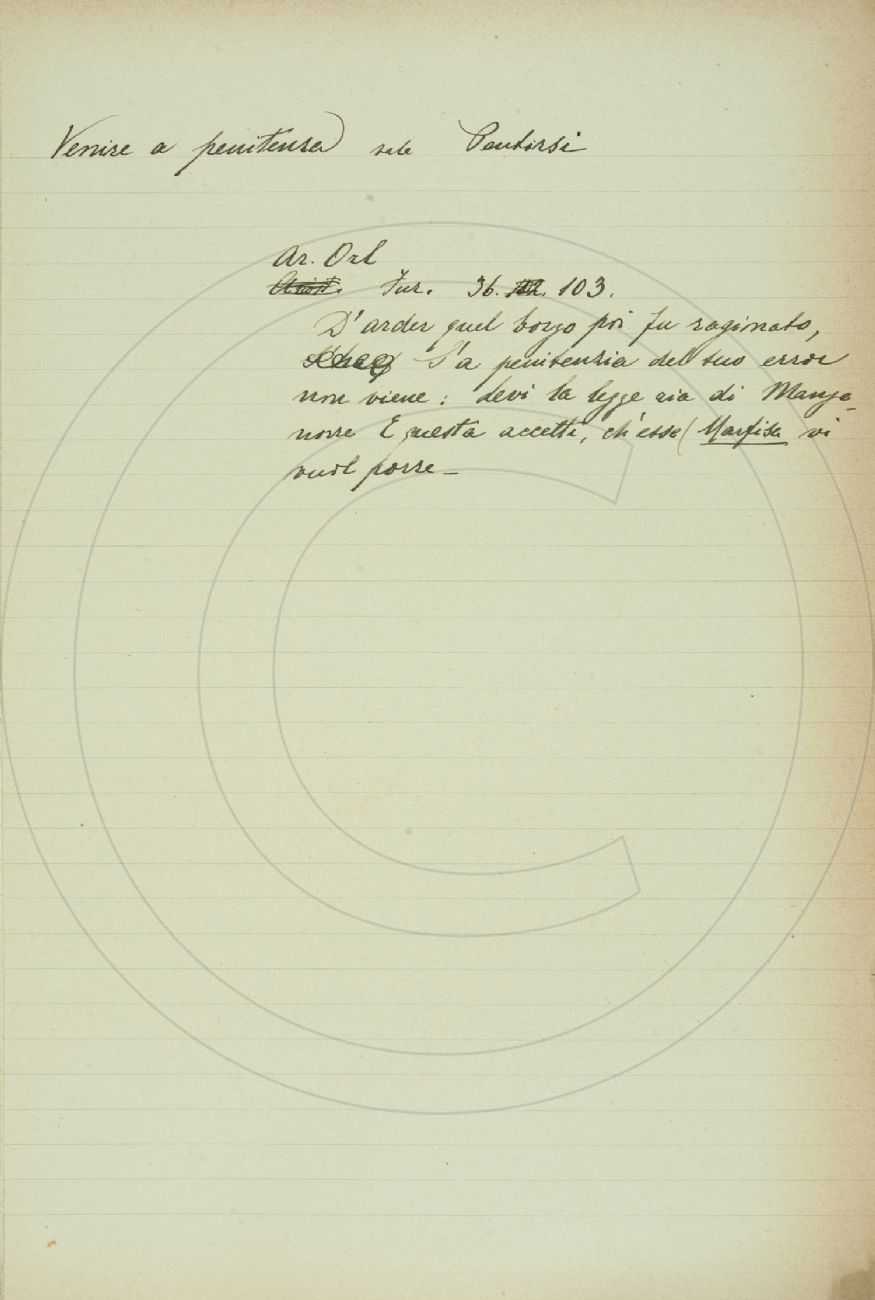 Venire a penitenza vale Pentirsi
Ar. Orl
Fur. 36. 103.
D'arder quel borgo poi fu ragionato,
S'a penitenzia del suo error
non viene: levi la legge ria di Manga-
norre E questa accetti, ch'essa (Marfisa vi
vuol porre _